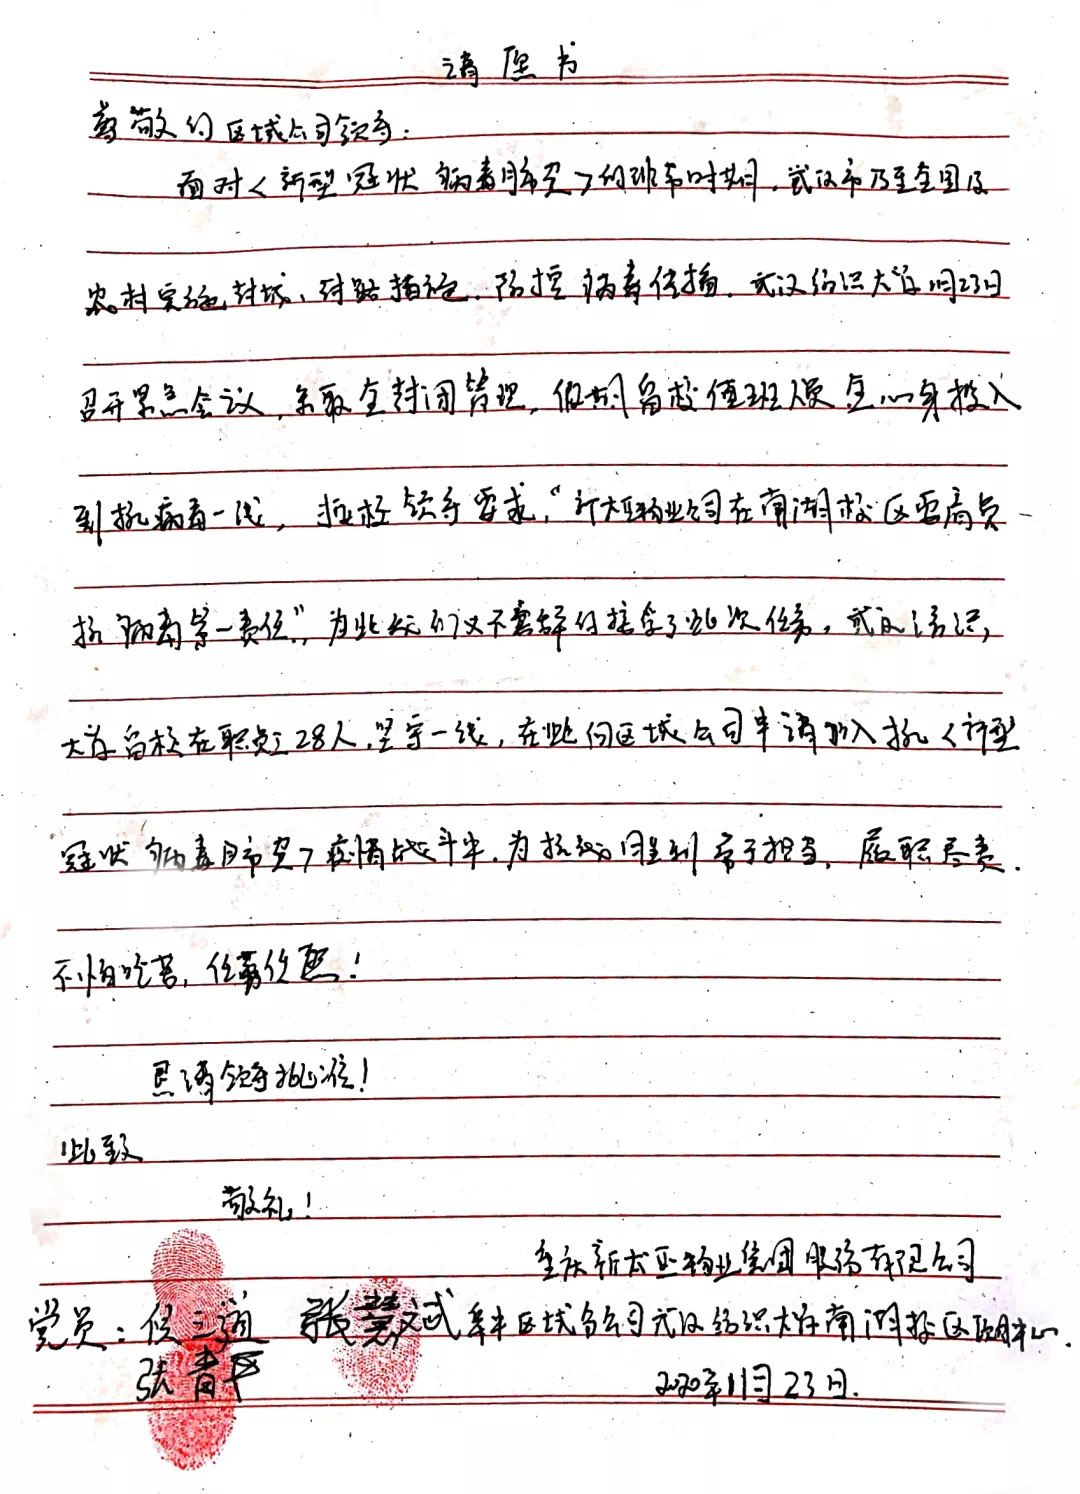 请愿书
尊敬的区域公司领导：
面对<新型冠状病毒肺炎>的非常时期，武汉市乃至全国及
农村实施封城、封路措施，防控病毒传播，武汉纺织大学1月23日
召开紧急会议，采取全封闭管理，假期留校值班人员全心身投入
到抗病毒一线，按校领导要求，“新大正物业公司在南湖校区要肩负
抗病毒第一责任”，为此我们义不容辞的接受了此次任务，武汉纺织
大学留校在职员工28人，坚守一线，在此向区域公司申请加入抗<新型
冠状病毒肺炎>疫情战斗中，为抗疫同登到勇于担当，履职尽责，
不怕吃苦，任劳任怨！
恳请领导批准！
此致
敬礼！
重庆新大正物业集团股份有限公司
党员：侯三强 张慧斌 华中区域分公司武汉纺织大学南湖校区项目中心
张青平
2020年1月23日.